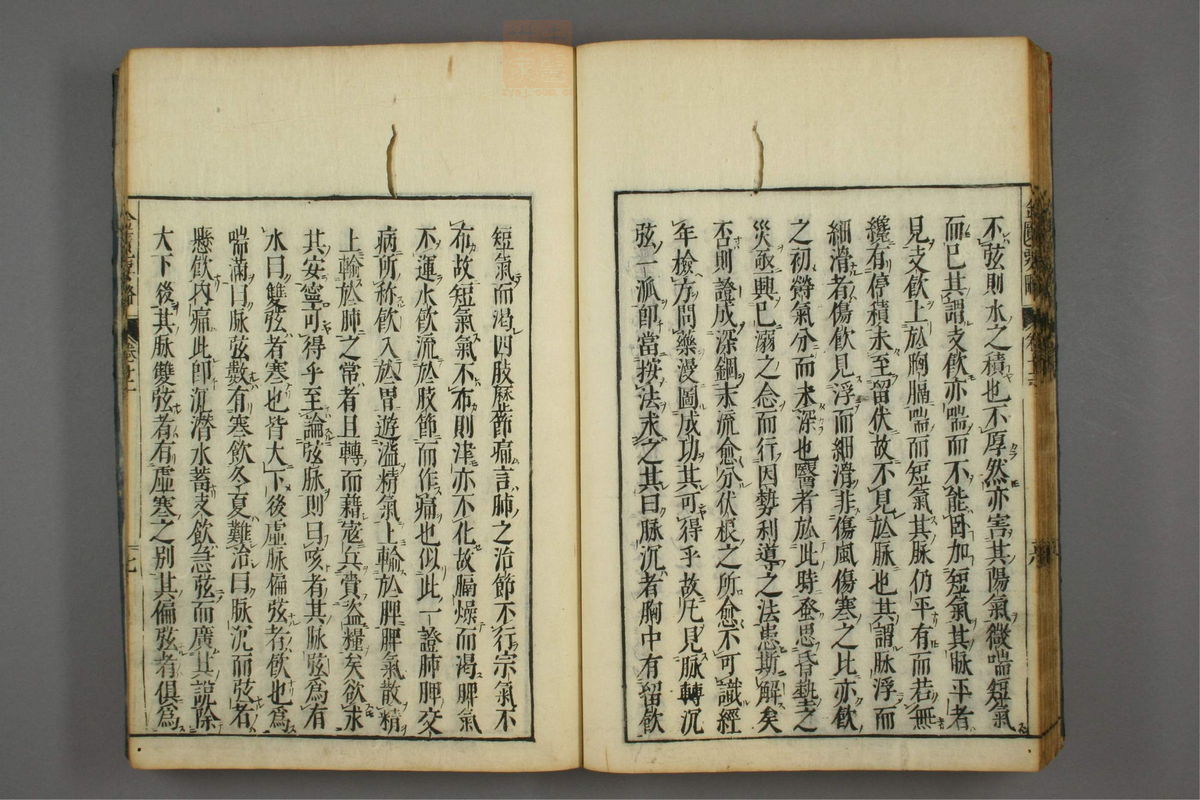 不弦則水之積也不厚然亦害其陽氣微喘短氣
而已其謂支飲亦喘而不能因加短氣其脉平者
見支飲上於胸膈喘而短氣其脉仍平有而若無
纔有停積未至留伏故不見於脉也其謂脉浮而
細滑者傷飲見浮而細滑非傷風傷寒之比亦飲
之初勞氣分而未深也醫者於此時蚤思昏墊之
災亟興已溺之念而行因勢利導之法患斯解矣
否則證成深錮末流愈分伏根之所愈不可識經
年檢方問藥漫圖成功其可得乎故凡見脉轉沉
弦一派即當按法求之其曰脉沉者胸中有留飲
短氣而渴四肢歷節痛言肺之治節不行宗氣不
布故短氣氣不布則津亦不化故膈燥而渴脾氣
不運水飲流於肢節而作痛也似此一證肺脾交
病所称飲入於胃遊溢精氣上輸於脾脾氣散精
上輸於肺之常者且轉而藉寇兵賚盗糧矣欲求
其安寧可得乎至論弦脉則曰咳者其脉弦為有
水曰雙弦者寒也皆大下後虛脉偏弦者飲也為
喘滿曰脉弦數有寒飲冬夏難治曰脉沉而弦者
懸飲内痛此即沉潜水蓄支飲急弦而廣其說除
大下後其脉雙弦者有虛寒之别其偏弦者俱為